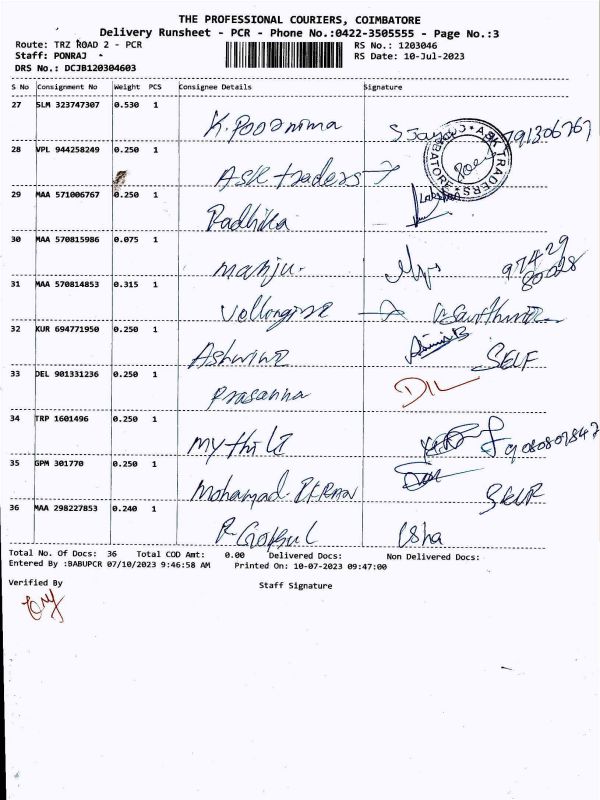 THE PROFESSIONAL COURIERS, COIMBATORE
Delivery Runsheet - PCR - Phone No.:0422-3505555 - Page No.:3
Route: TRZ ROAD 2 - PCR RS No.: 1203046
Staff: PONRAJ RS Date: 10-Jul-2023
DRS No.: DCJB120304603
S No Consignment No Weight PCS Consignee Details Signature
27 SLM 323747307 0.530 1
K. Poornima
28 VPL 944258249 0.250 1
Ask traders ASK TRADERS
29 MAA 571006767 0.250 1
Radhika Lakshmi
30 MAA 570815986 0.075 1
manju. 97429
80028
31 MAA 570814853 0.315 1
32 KUR 694771950 0.250 1
Ashwini SELF
33 DEL 901331236 0.250 1
Prasanna
34 TRP 1601496 0.250 1
mythili
35 GPM 301770 0.250 1
Mohamad SELF
36 MAA 298227853 0.240 1
R Gokul Usha
Total No. Of Docs: 36 Total COD Amt: 0.00 Delivered Docs: Non Delivered Docs:
Entered By :BABUPCR 07/10/2023 9:46:58 AM Printed On: 10-07-2023 09:47:00
Verified By Staff Signature